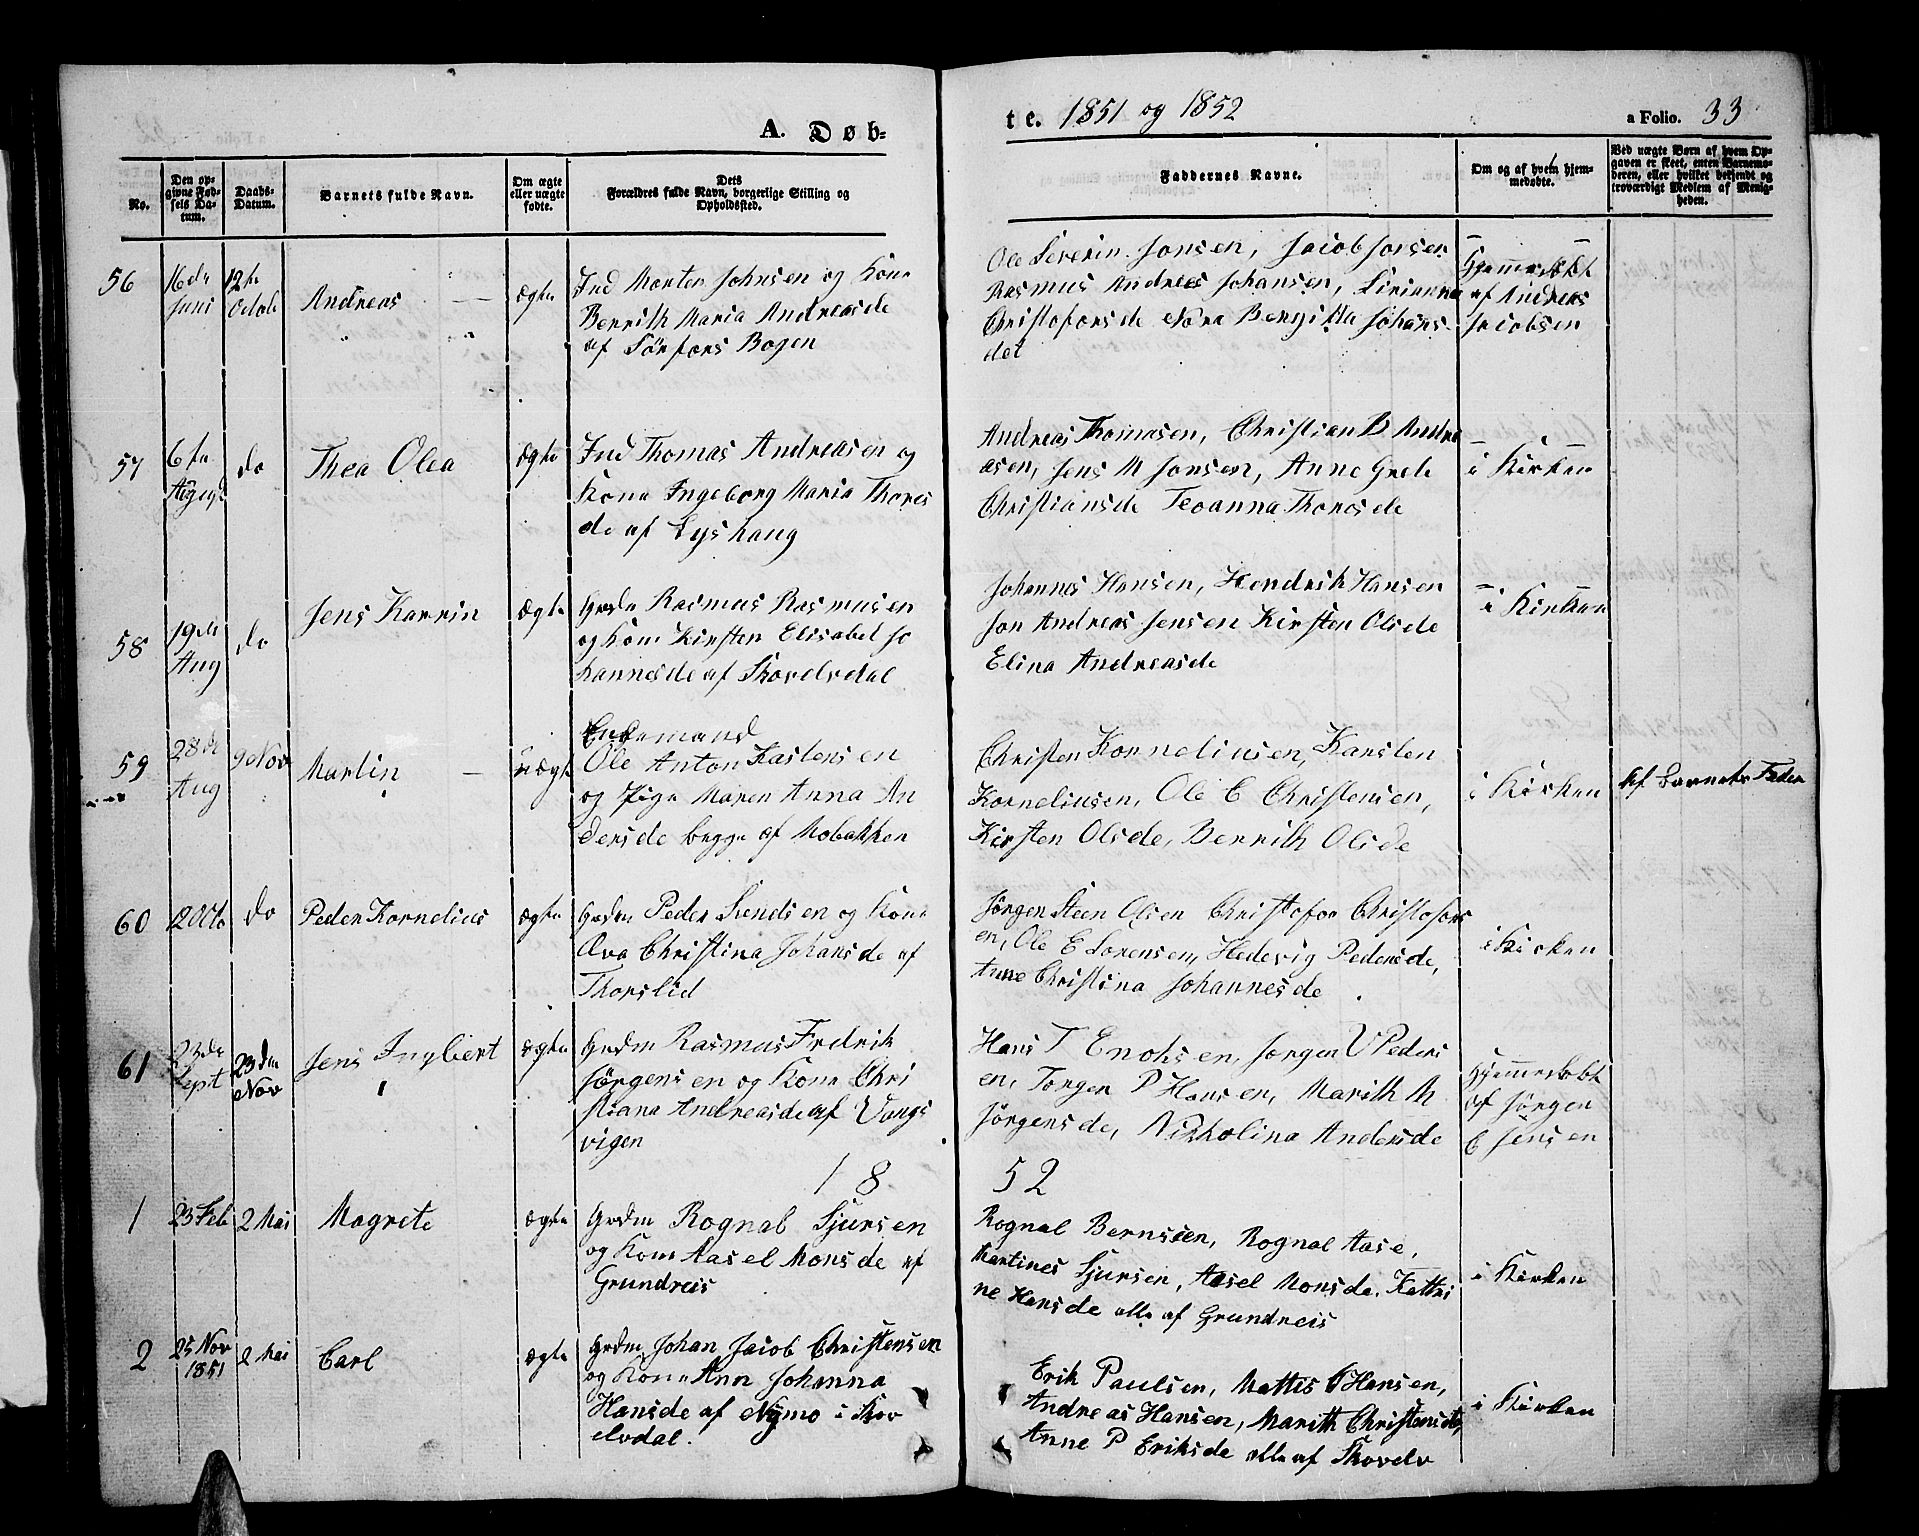 A. Døb-
te. 1851 og 1852
a Folio. 33
No.
Den op-
givne Fød-
sels Da-
tum.
Daabs-
Datum.
Barnets fulde Navn.
Om ægte
eller uægte
fødte.
Dets
Forældres fulde Navn, borgerlige Stilling og
Opholdssted.
Faddernes Navne.
Om og af hvem hjem-
medøbte.
Ved uægte Børn af hvem Op-
gaven er skeet, enten Barnemo-
deren, eller hvilket bekjendt og
troværdigt Medlem af Menig-
heden.
56
16de
Juni
12te
Octob
Andreas
Ægte
Ind Morten Johnsen og Kone
Berrith Maria Andreasde
af Sørfors Bogen
Ole Severin Jonsen, Jacob Jonsen
Rasmus Andreas Johansen, Sirianna
Christofersde Nora Bergitta Johans-
det
Hjemmedøbt
af Andreas
Jacobsen
57
6te
August
do
Thea Olea
Ægte
Ind Thomas Andreasen og
Kone Ingeborg Maria Thores
de af Lyshaug
Andreas Thomasen, Christian B Andre
asen, Jens M Jonsen, Anne Grete
Christiansde Teoanna Thoresde
i Kirken
58
19de
Aug
do
Jens Karrin
Ægte
Grdm Rasmus Rasmusen
og Kone Kirsten Elisabet Jo
hannesde af Skovelvdal
Johannes Hansen, Hendrik Hansen
Jon Andreas Jensen Kirsten Olsde
Elina Andreasde
i Kirken
59
28de
Aug
9 Nov
Martin
uægte
Enkemand
Ole Anton Kastensen
og Pige Maren Anna An
dersde begge af Mobakken
Christen Kornelinsen, Karsten
Kornelinsen, Ole E Christensen,
Kirsten Olsde, Berrith Olsde
i Kirken
Af Barnets Fader
60
12 Octo
do
Peder Kornelius
Ægte
Grdm Peder Svendsen og Kone
Eva Christina Johansde af
Thorslid
Jørgen Steen Olsen Christofor Christofors
en, Ole E Sorensen, Hedevig Pedersde,
Anne Christina Johannesde
i Kirken
61
23de
Sept
23de
Nov
Jens Ingbert
Ægte
Grdm Rasmus Fredrik
Jørgensen og Kone Chri
stiana Andreasde af Vangs
vigen
Hans T Enoksen, Jørgen V Peders
en, Torger P Hansen, Marith M
Jørgensde, Nikkolina Andersde
Hjemmedøbt
af Jørgen
E Jensen
18
52
1
23 Feb
2 Mai
Magrete
Ægte
Grdm Rognal Sjursen
og Kone Aasel Monsde af
Grundreis
Rognal Bernssen, Rognal Aase,
Martines Sjursen, Aasel Monsde. Kattri
ne Hansde alle af Grundreis
i Kirken
2
25 Nov
1851
2 Mai
Carl
Ægte
Grdm Johan Jacob Christensen
og Kone Ann Johanna
Hansde af Nymo i Skov
elvdal.
Erik Paulsen, Mattis O Hansen,
Andreas Hansen, Marith Christensde,
Anne P Eriksde alle af Skovelv
i Kirken